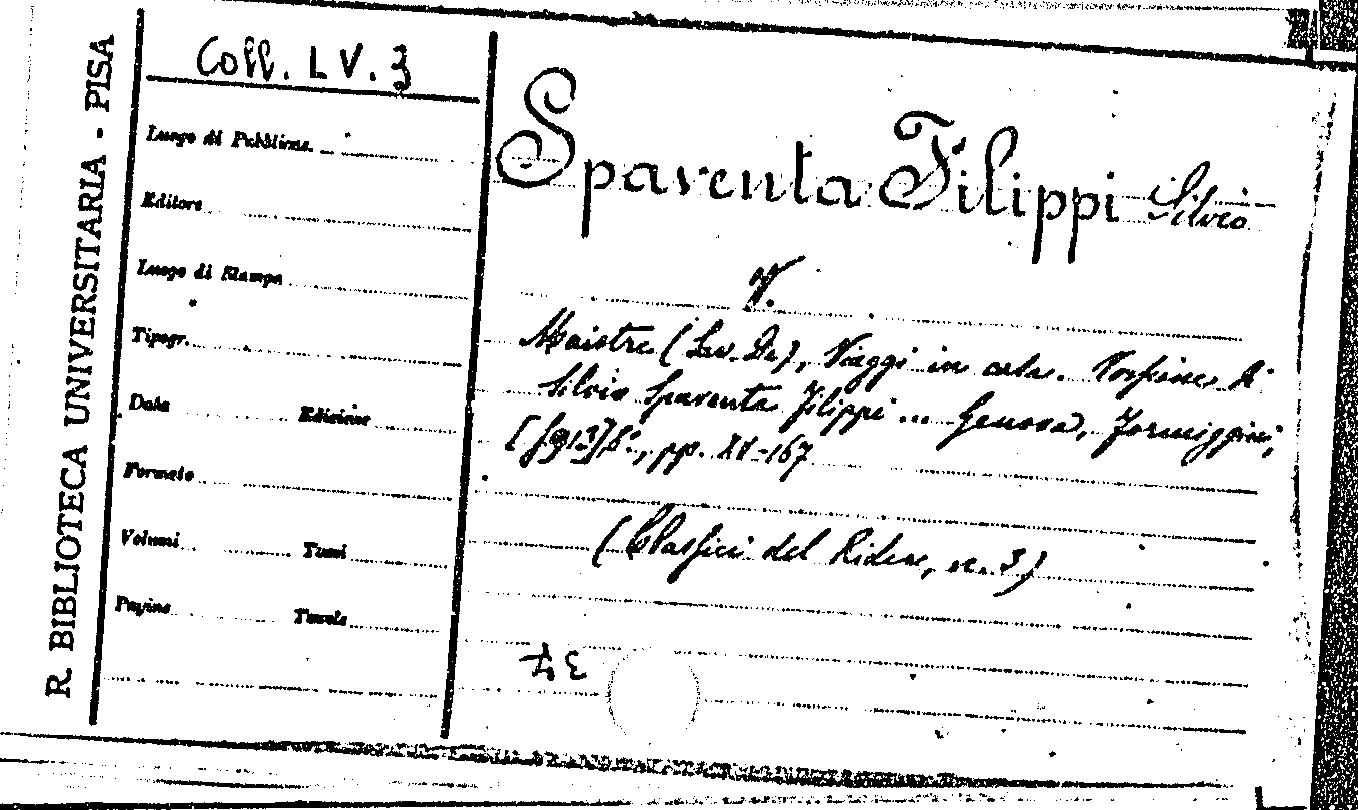 R. BIBLIOTECA UNIVERSITARIA - PISA
Coll. LV. 3
Luogo di Pubblicaz.
Editore
Luogo di Stampa
Tipogr.
Data Edizione
Formato
Volumi Tomi
Pagine Tavole
Spaventa Filippi Silvio
V.
Maistre (Sav. De), Viaggi in casa. Versione di
Silvio Spaventa Filippi ... Genova, Formiggini,
[1913] 8°., pp. XV-167
(Classici del Ridere, n. 3)